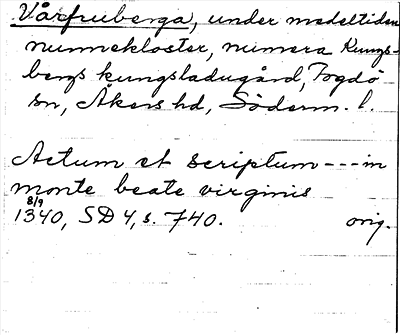 Vårfruberga, under medeltiden
nunnekloster, numera Kungs-
bergs kungsladugård, Fogdö
sn, Åkers hd, Söderm. l.
Actum et scriptum --- in
monte beate virginis
8/9
1340, SD 4, s. 740. orig.